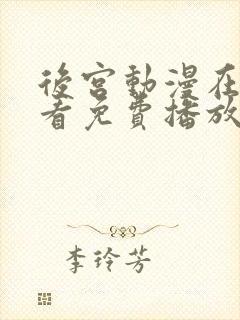 後宮動漫在
看免費播放
李玲芳